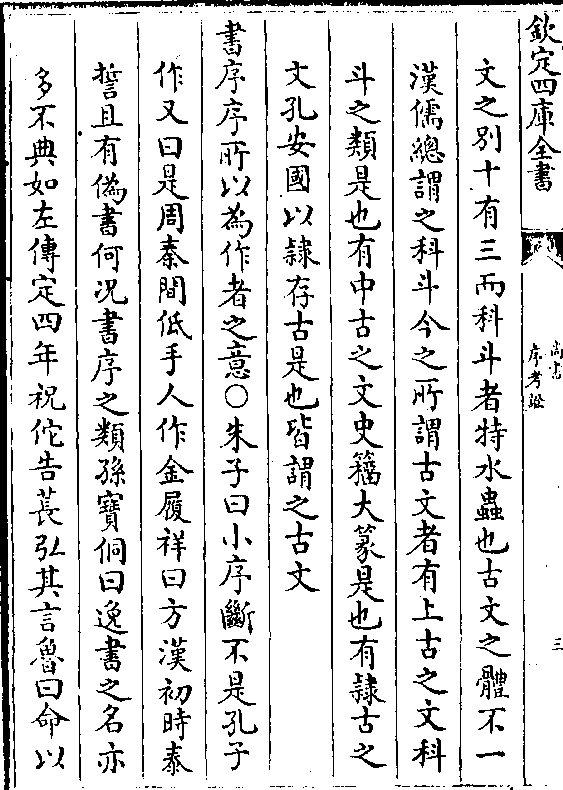 欽定四庫全書
尚書
序考證
三
文之別十有三而科斗者特水蟲也古文之體不一
漢儒總謂之科斗今之所謂古文者有上古之文科
斗之類是也有中古之文史籒大篆是也有隷古之
文孔安國以隷存古是也皆謂之古文
書序序所以為作者之意○朱子曰小序斷不是孔子
作又曰是周秦間低手人作金履祥曰方漢初時泰
誓且有偽書何况書序之類孫寶侗曰逸書之名亦
多不典如左傳定四年祝佗告萇弘其言魯曰命以